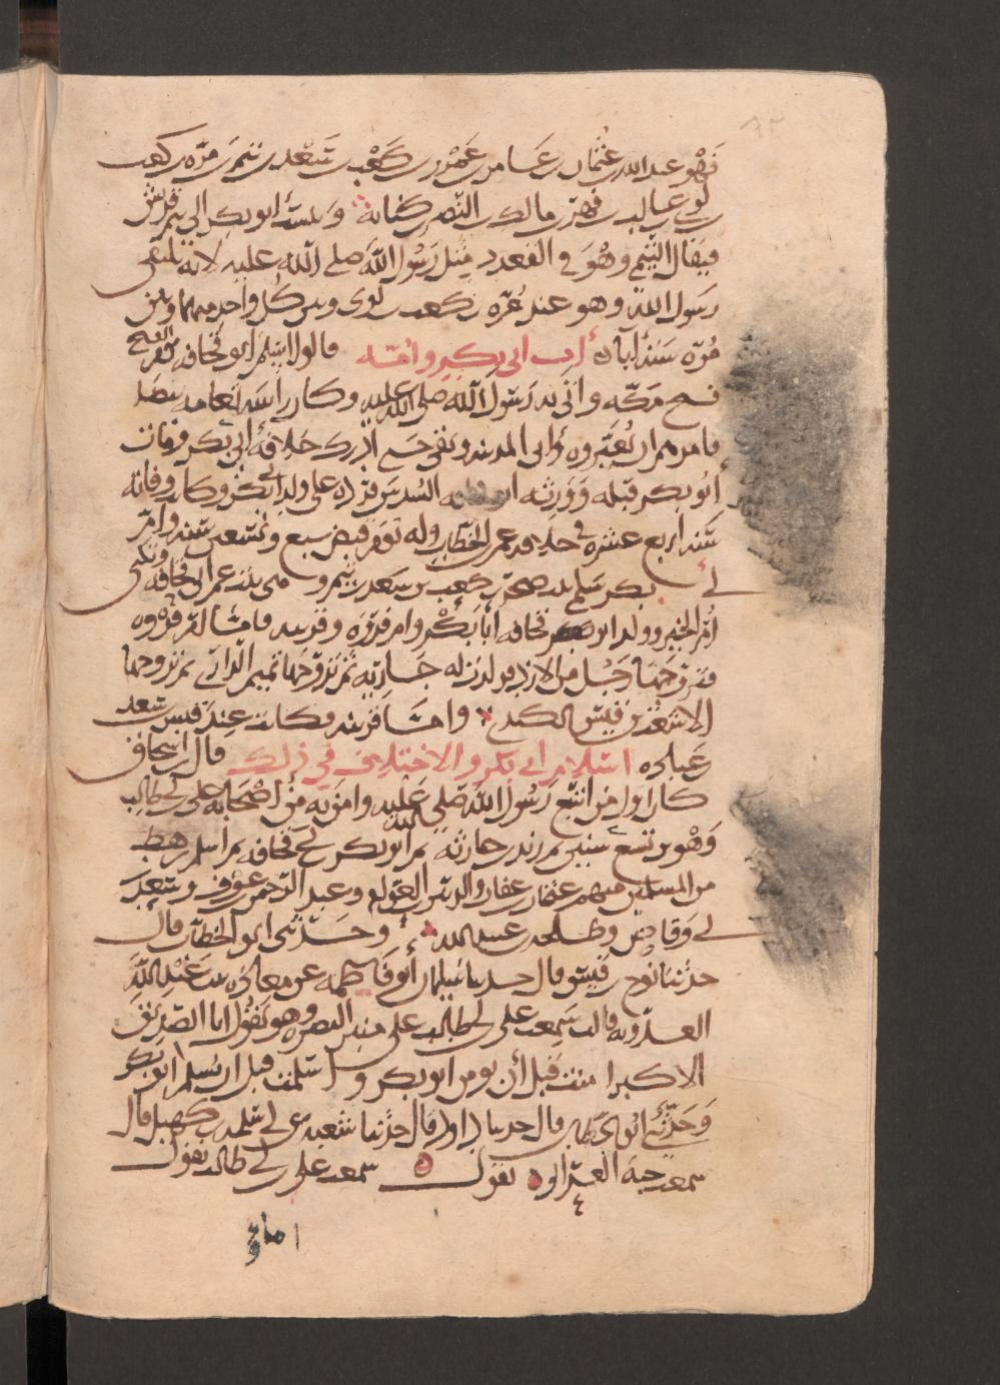 فهو عبد الله بن عثمان بن عامر بن عمرو بن كعب بن سعد بن تيم بن مرة بن كعب
بن لوي بن غالب بن فهر بن مالك بن النضر بن كنانة وينسب ابو بكر الى تيم قريش
فيقال التيمي وهو في القعدد مثل رسول الله صلى الله عليه لانه يلتقي
رسول الله وهو عند مرة بن كعب بن لوي وبين كل واحد منهما وبين
مرة ستة آباء اب ابي بكر وامه قالوا اسلم ابو قحافة يوم الفتح
فتح مكة واتي به رسول الله صلى الله عليه وكان راسه ثغامة بيضا
فامرهم ان يغيروه واتى المدينة وبقي حتى ادرك خلافة ابي بكر ومات
ابو بكر قبله وورثه ابو قحافة السدس فرده على ولد ابي بكر وكان وفاته
سنة اربع عشرة في خلافة عمر بن الخطاب وله يوم قبض سبع وتسعين سنة وام
ابي بكر سلمى بنت صخر بن كعب بن سعد بن تيم و هي بنت عم ابي قحافة وتكنى
ام الخير وولد ابو قحافة ابا بكر وام فروة وقريبة فاما ام فروة
فتزوجها رجل من الازد فولدت له جارية ثم تزوجها تميم الداري ثم تزوجها
الاشعث بن قيس الكندي واما قريبة فكانت عند قيس بن سعد
بن عبادة اسلام ابي بكر والاختلاف في ذلك قال ابن اسحاق
كان اول من اتبع رسول الله صلى الله عليه وامن به من اصحابه علي بن ابي طالب
وهو بن تسع سنين ثم زيد بن حارثة ثم ابو بكر بن ابي قحافة ثم اسلم رهط
من المسلمين منهم عثمان بن عفان والزبير بن العوام وعبد الرحمن بن عوف وسعد بن
ابي وقاص وطلحة بن عبيد الله وحدثني ابو الخطاب قال
حدثنا نوح بن قيس قال حدثنا سليمان ابو فاطمة عن معاذة بنت عبد الله
العدوية قالت سمعت علي بن ابي طالب على منبر البصرة وهو يقول انا الصديق
الاكبر امنت قبل أن يومن ابو بكر واسلمت قبل ان يسلم ابو بكر
وحدثني ابو الخطاب قال حدثنا ابو داود قال حدثنا شعبة عن ابي سلمة بن كهيل قال
سمعت حبة العرني يقول سمعت علي بن ابي طالب يقول
انا اول